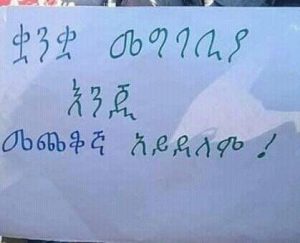 ቋንቋ መግባቢያ
እንጂ
መጨቆኛ አይደለም !